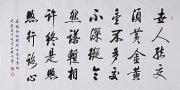 世人結交
須黄金黄
金不多交
不深縱令
然諾暫相
許終是悠
悠行路心